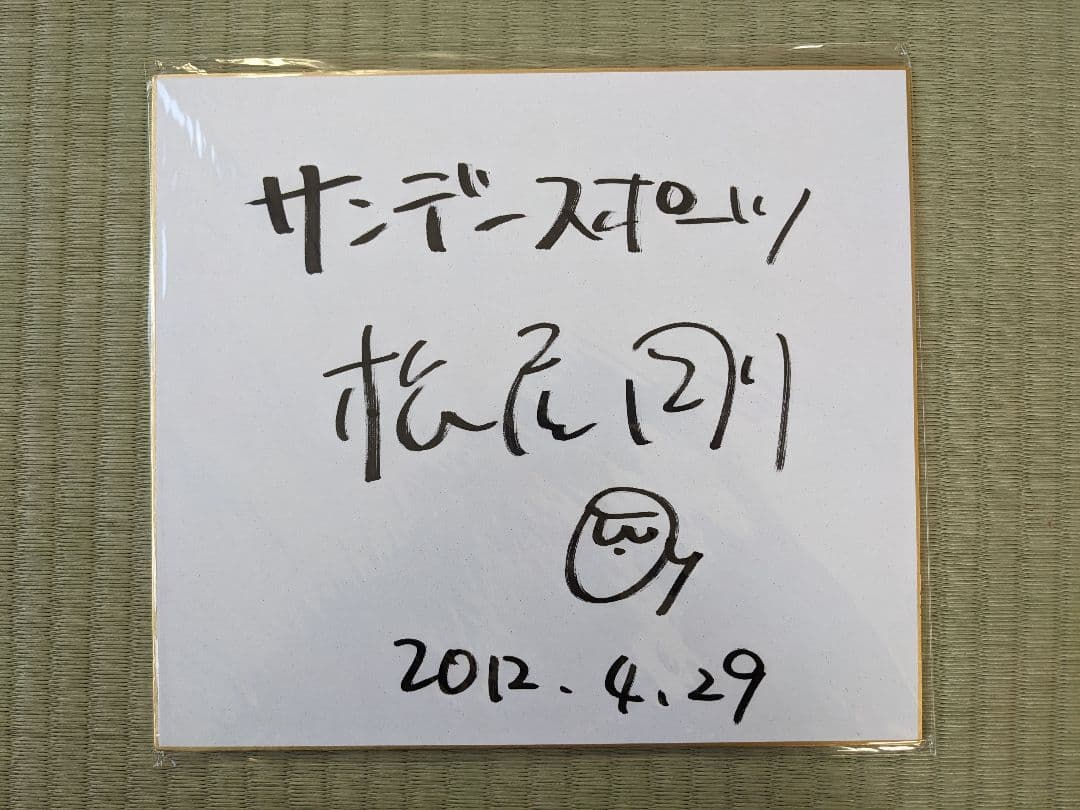 サンデースポーツ
松尾剛
2012.4.29